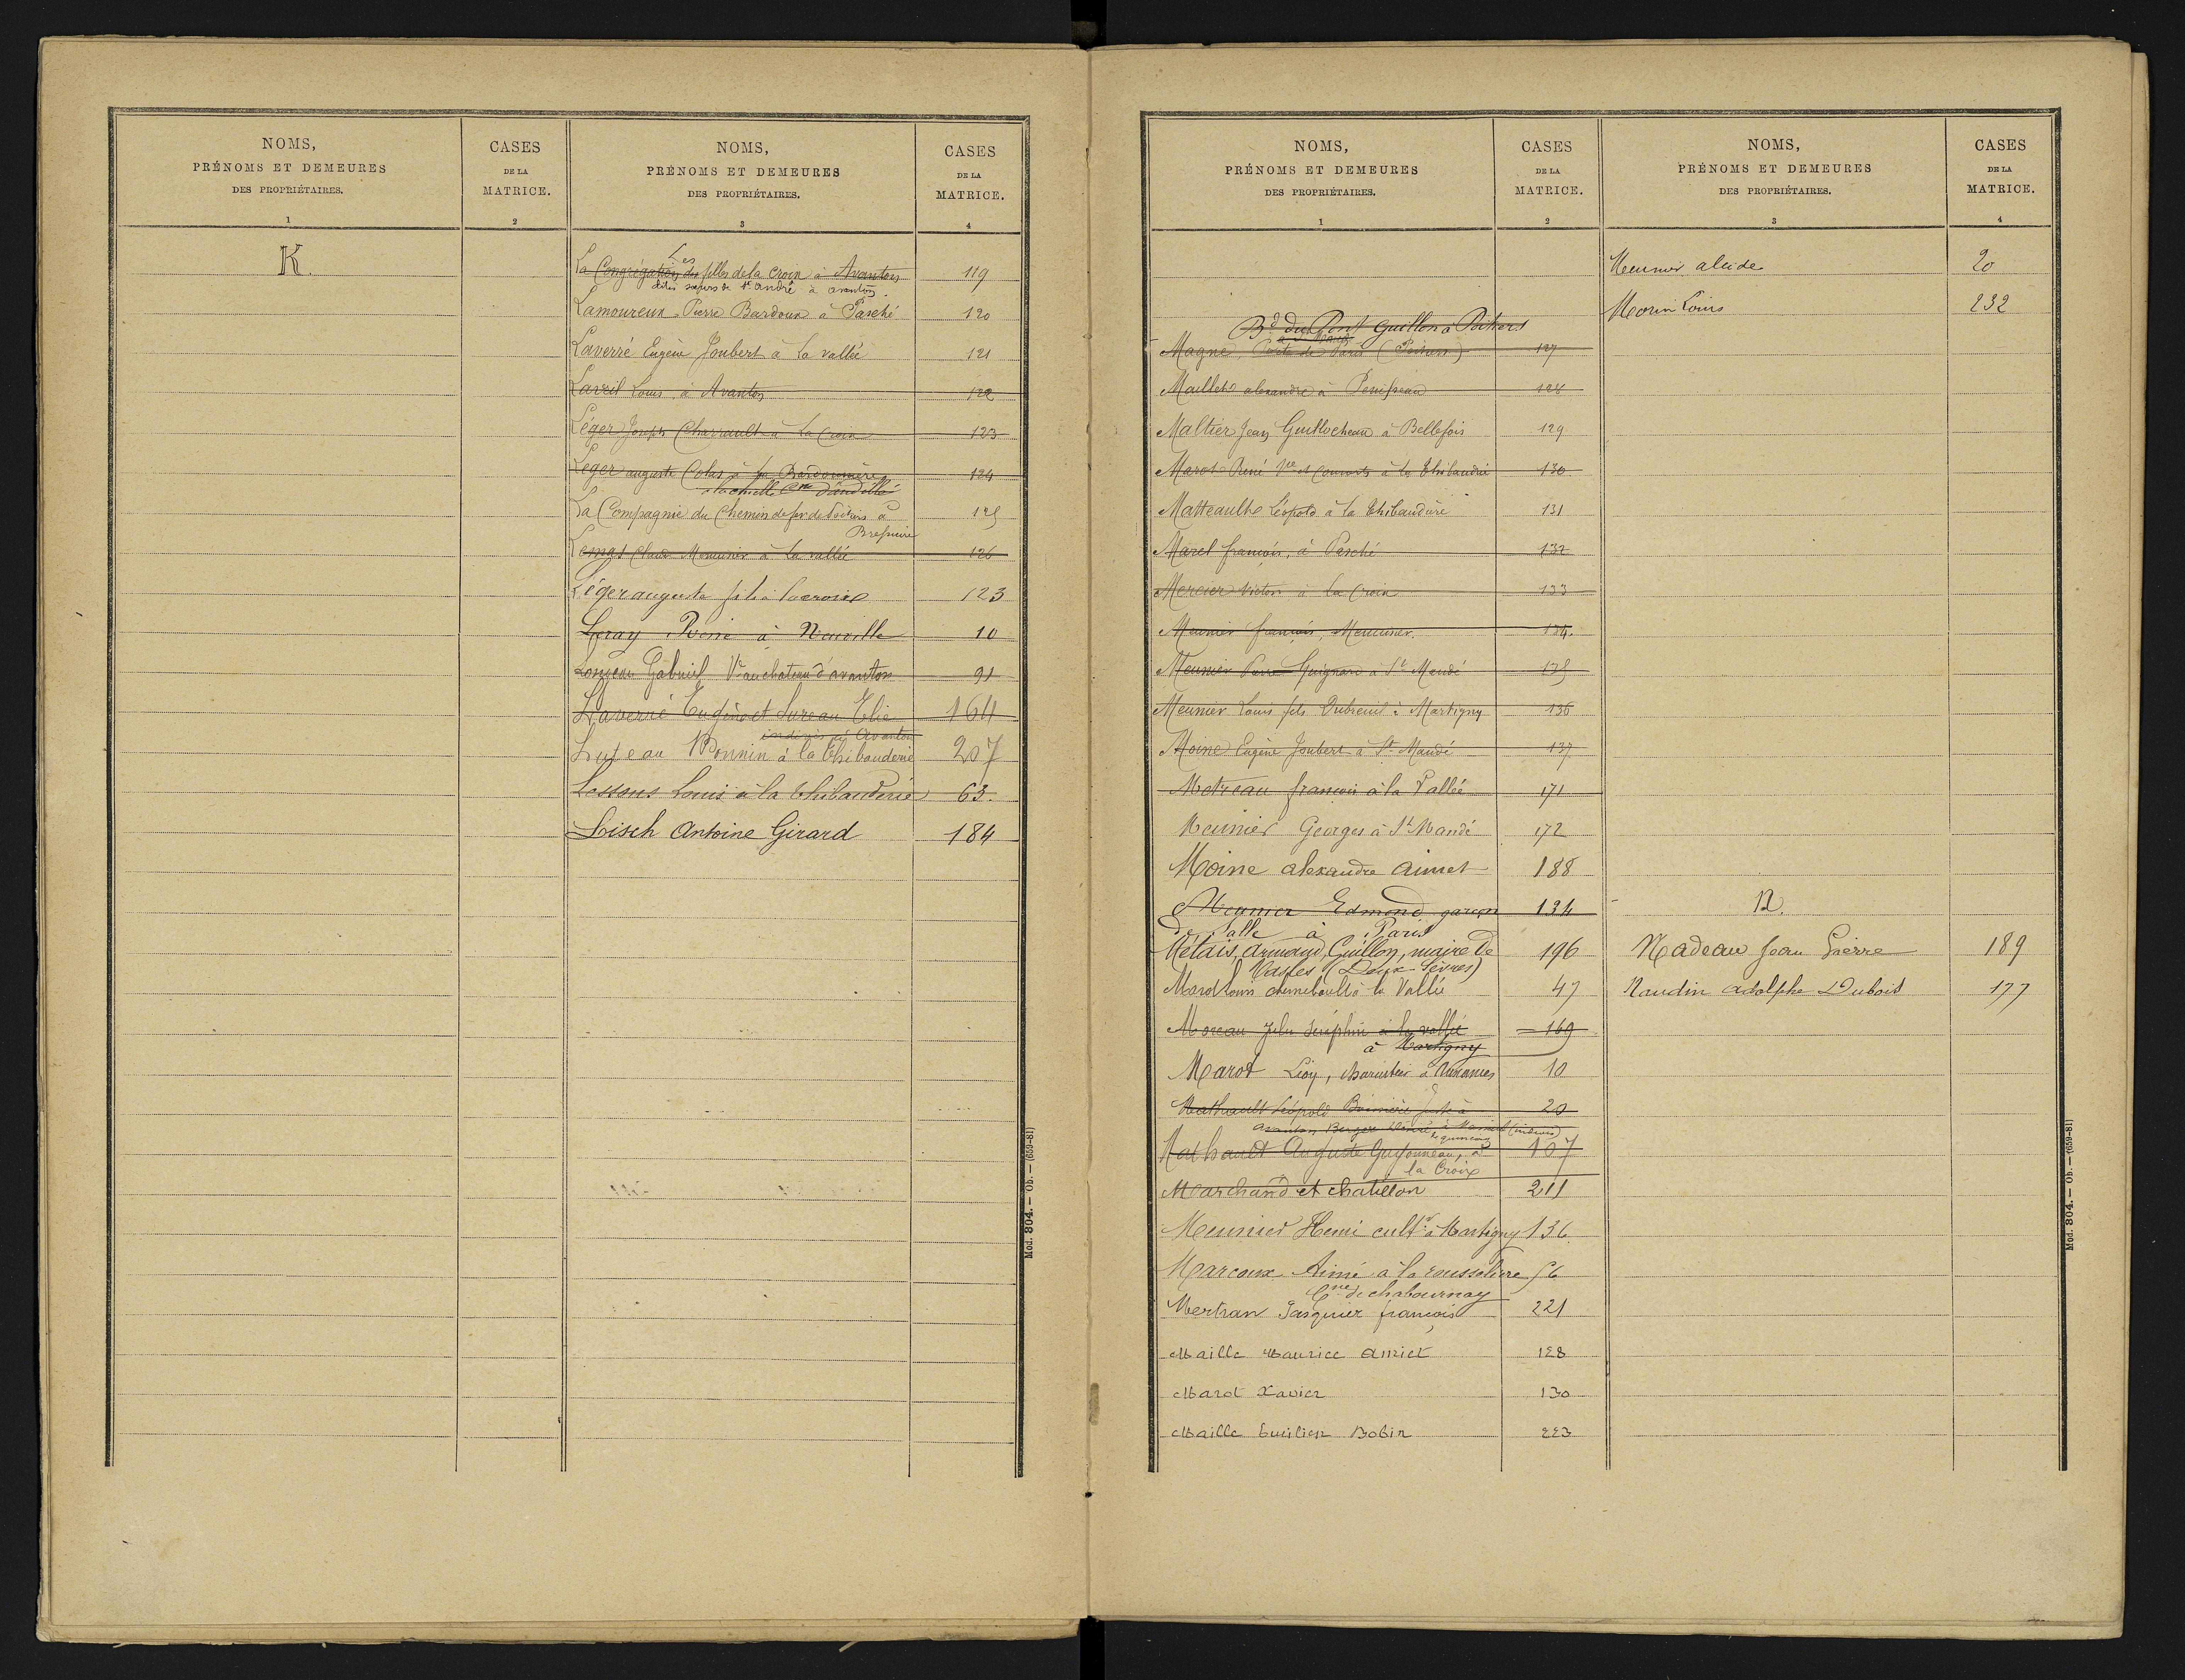 NOMS,
PRÉNOMS ET DEMEURES
DES PROPRIÉTAIRES.
1
CASES
DE LA
MATRICE.
2
K.
NOMS,
PRÉNOMS ET DEMEURES
DES PROPRIÉTAIRES.
3
CASES
DE LA
MATRICE.
4
Les
La Congrégation des filles de la Croix à Avanton 119
dites sœurs de St André à avanton.
Lamoureux Pierre Bardoux à Pasché 120
Laverré Eugène Joubert à la vallée 121
Lavril Louis à Avanton 122
Léger Joseph Charrault à La Croix 123
Léger auguste Colas à la Bardonnière 124
Cne d'andillé
La Compagnie du Chemin de fer de Poitiers à 125
Bressuire
Claude Meunier à La vallée 126
Léger auguste fils à lacroix 123
Leray Pierre à Neuville 10
Gabriel Ve au chateau d'avanton 91
Laverré Eugène et Lureau Elie 164
indivis à Avanton
Luzeau Monnin à la Thibauderie 207
Lessous Louis à la Thibauderie 63.
Lisch Antoine Girard 184
Mod. 304. — Ob. — (659-81)
NOMS,
PRÉNOMS ET DEMEURES
DES PROPRIÉTAIRES.
1
CASES
DE LA
MATRICE.
2
Bd du Pont Guillon à Poitiers
Magne, Porte de Paris (Poitiers) 127
Maillet alexandre à 128
Maltier Jean Guillocheau à Bellefois 129
Marot René Vve et Consorts à la Thibaudrie 130
Matteault Léopold à la Thibaudrie 131
Marel françois, à Pasché 132
Mercier Victor à La Croix 133
Meunier françois, Meunier. 134.
Meunier Pierre Guignard à St Mandé 135
Meunier Louis fils Dubreuil à Martigny 136
Moine Eugène Joubert à St Mandé 137
Metreau françois à la Vallée 171
Meunier Georges à St Mandé 172
Moine alexandre aimet 188
Meunier Edmond garçon 134
de salle à Paris
Métais, Armand, Guillon, maire de 196
Vasles (Deux-Sèvres)
Marot Louis à la Vallée 47
Moreau Jules Séraphin à la vallée 169
à Martigny
Marot Léon, à 10
Mathault Léopold à 20
avanton, Berger (indivis)
Mathault Auguste Guyonneau, à 107
la Croix
Marchand et chatillon 211
Meunier Henri cultr à Martigny 136.
Marcoux Aimé à la rousselière 56
Cne de chabournay
Mertran Pasquier françois 221
Maille Maurice Amiet 128
Marot Xavier 130
Maille Emilien Bobin 223
NOMS,
PRÉNOMS ET DEMEURES
DES PROPRIÉTAIRES.
3
CASES
DE LA
MATRICE.
4
Meunier alcide 20
Morin Louis 232
N.
Nadeau Jean Pierre 189
Naudin Adolphe Dubois 177
Mod. 304. — Ob. — (659-81)